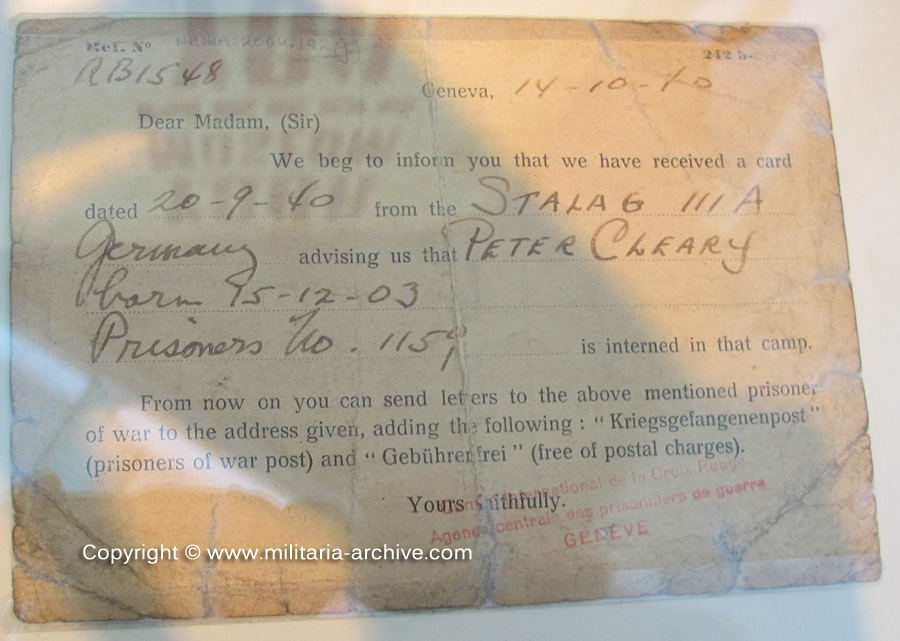 Ref. Nº
RB1548
242 b-
Geneva, 14-10-40
Dear Madam, (Sir)
We beg to inform you that we have received a card
dated 20-9-40 from the STALAG IIIA
Germany advising us that PETER CLEARY
born 15-12-03
Prisoners No. 1159 is interned in that camp.
From now on you can send letters to the above mentioned prisoner
of war to the address given, adding the following : “ Kriegsgefangenenpost ”
(prisoners of war post) and “ Gebührenfrei ” (free of postal charges).
Yours faithfully.
Comité International de la Croix Rouge
Agence centrale des prisonniers de guerre
GENÈVE
Copyright © www.militaria-archive.com